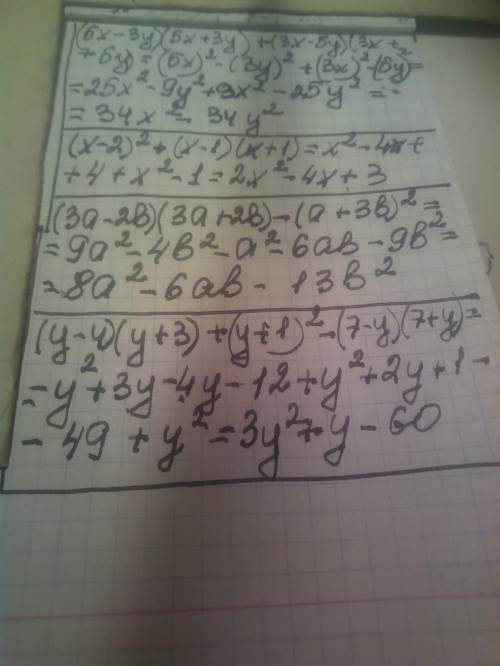 (5x-3y)(5x+3y)+(3x-5y)(3x+
+5y)=(5x)²-(3y)²+(3x)²-(5y)²=
=25x²-9y²+9x²-25y²=
=34x²-34y²
(x-2)²+(x-1)(x+1)=x²-4x+
+4+x²-1=2x²-4x+3
(3a-2b)(3a+2b)-(a+3b)²=
=9a²-4b²-a²-6ab-9b²=
=8a²-6ab-13b²
(y-4)(y+3)+(y+1)²-(7-y)(7+y)=
=y²+3y-4y-12+y²+2y+1-
-49+y²=3y²+y-60